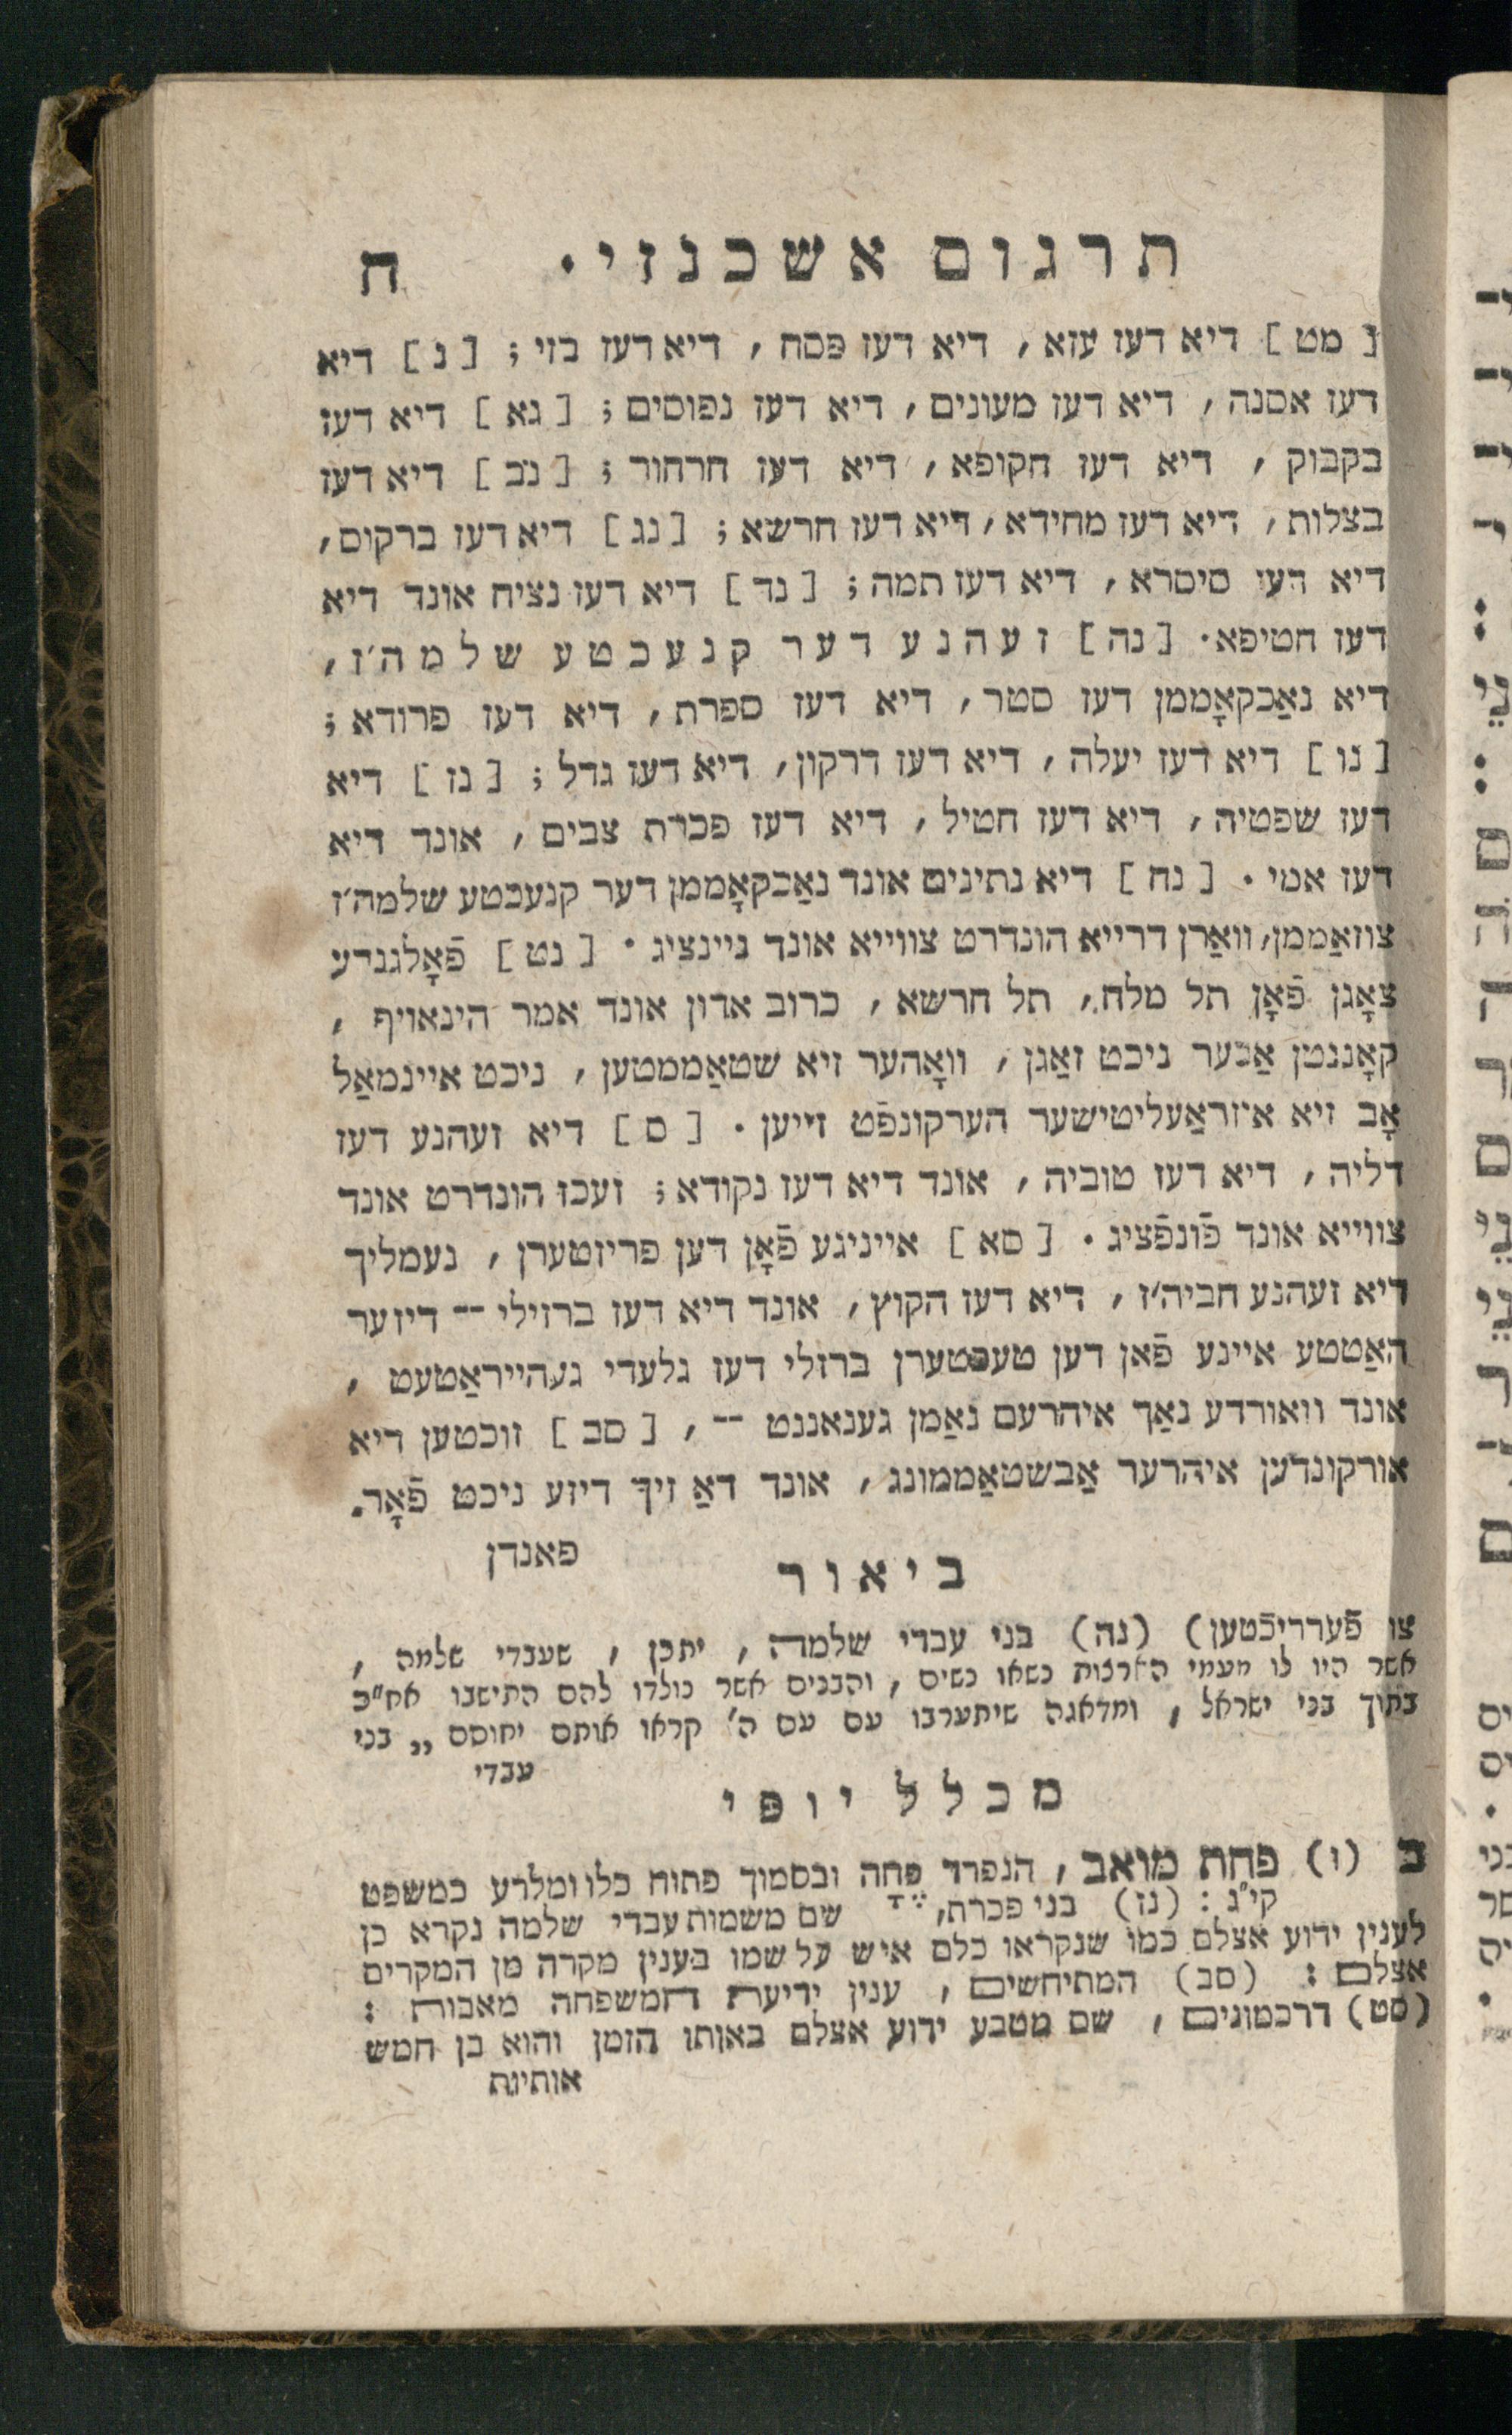 תרגום אשכנזי · ח
[מט] דיא דעז עזא, דיא דעז פסח, דיא דעז בזי; [נ] דיא
דעז אסנה, דיא דעז מעונים, דיא דעז נפוסים; [נא] דיא דעז
בקבוק, דיא דעז חקופא, דיא דעז חרחור; [נב] דיא דעז
בצלות, דיא דעז מחידא, דיא דעז חרשא; [נג] דיא דעז ברקום,
דיא דעז סיסרא, דיא דעז תמה; [נד] דיא דעז נציח אונד דיא
דעז חטיפא. [נה] זעהנע דער קנעכטע שלמה'ז,
דיא נאַכקאָממן דעז סטר, דיא דעז ספרת, דיא דעז פרודא;
[נו] דיא דעז יעלה, דיא דעז דרקון, דיא דעז גדל; [נז] דיא
דעז שפטיה, דיא דעז חטיל, דיא דעז פכרת צבים, אונד דיא
דעז אמי. [נח] דיא נתינים אונד נאַכקאָממן דער קנעכטע שלמה'ז
צוזאַממן, וואַרן דרייא הונדרט צווייא אונד ניינציג. [נט] פֿאָלגנדע
צאָגן פֿאָן תל מלח, תל חרשא, כרוב אדון אונד אמר הינאויף,
קאָננטן אַבער ניכט זאַגן, וואָהער זיא שטאַממטען, ניכט איינמאַל
אָב זיא איזראַעליטישער הערקונפֿט זייען. [ס] דיא זעהנע דעז
דליה, דיא דעז טוביה, אונד דיא דעז נקודא; זעכז הונדרט אונד
צווייא אונד פֿונפֿציג. [סא] אייניגע פֿאָן דען פריזטערן, נעמליך
דיא זעהנע חביה'ז, דיא דעז הקוץ, אונד דיא דעז ברזילי -- דיזער
האַטטע איינע פֿאן דען טעכטערן ברזלי דעז גלעדי געהייראַטעט,
אונד וואורדע נאַך איהרעם נאַמן גענאננט --, [סב] זוכטען דיא
אורקונדען איהרער אַבשטאַממונג, אונד דאַ זיך דיזע ניכט פֿאָר.
פאנדן
ביאור
צו פֿערריכֿטען) (נה) בני עבדי שלמה, יתכן, שעבדי שלמה,
אשר היו לו מעמי הארצות נשאו נשים, והבנים אשר נולדו להם התישבו אח"כ
בתוך בני ישראל, ומדאגה שיתערבו עם עם ה' קראו אותם יחוסם ,,בני
עבדי
מכלל יופי
ב (ו) פחת מואב, הנפרד פחה ובסמוך פתוח כלו ומלרע כמשפט
קי"ג: (נז) בני פכרת, שם משמות עבדי שלמה נקרא כן
לענין ידוע אצלם כמו שנקראו כלם איש על שמו בענין מקרה מן המקרים
אצלם: (סב) המתיחשים, ענין ידיעת המשפחה מאבות:
(סט) דרכמונים, שם מטבע ידוע אצלם באותו הזמן והוא בן חמש
אותיות